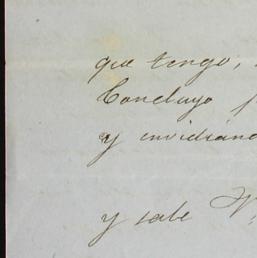 que tengo,
Concluyo
y envidiando
y sabe